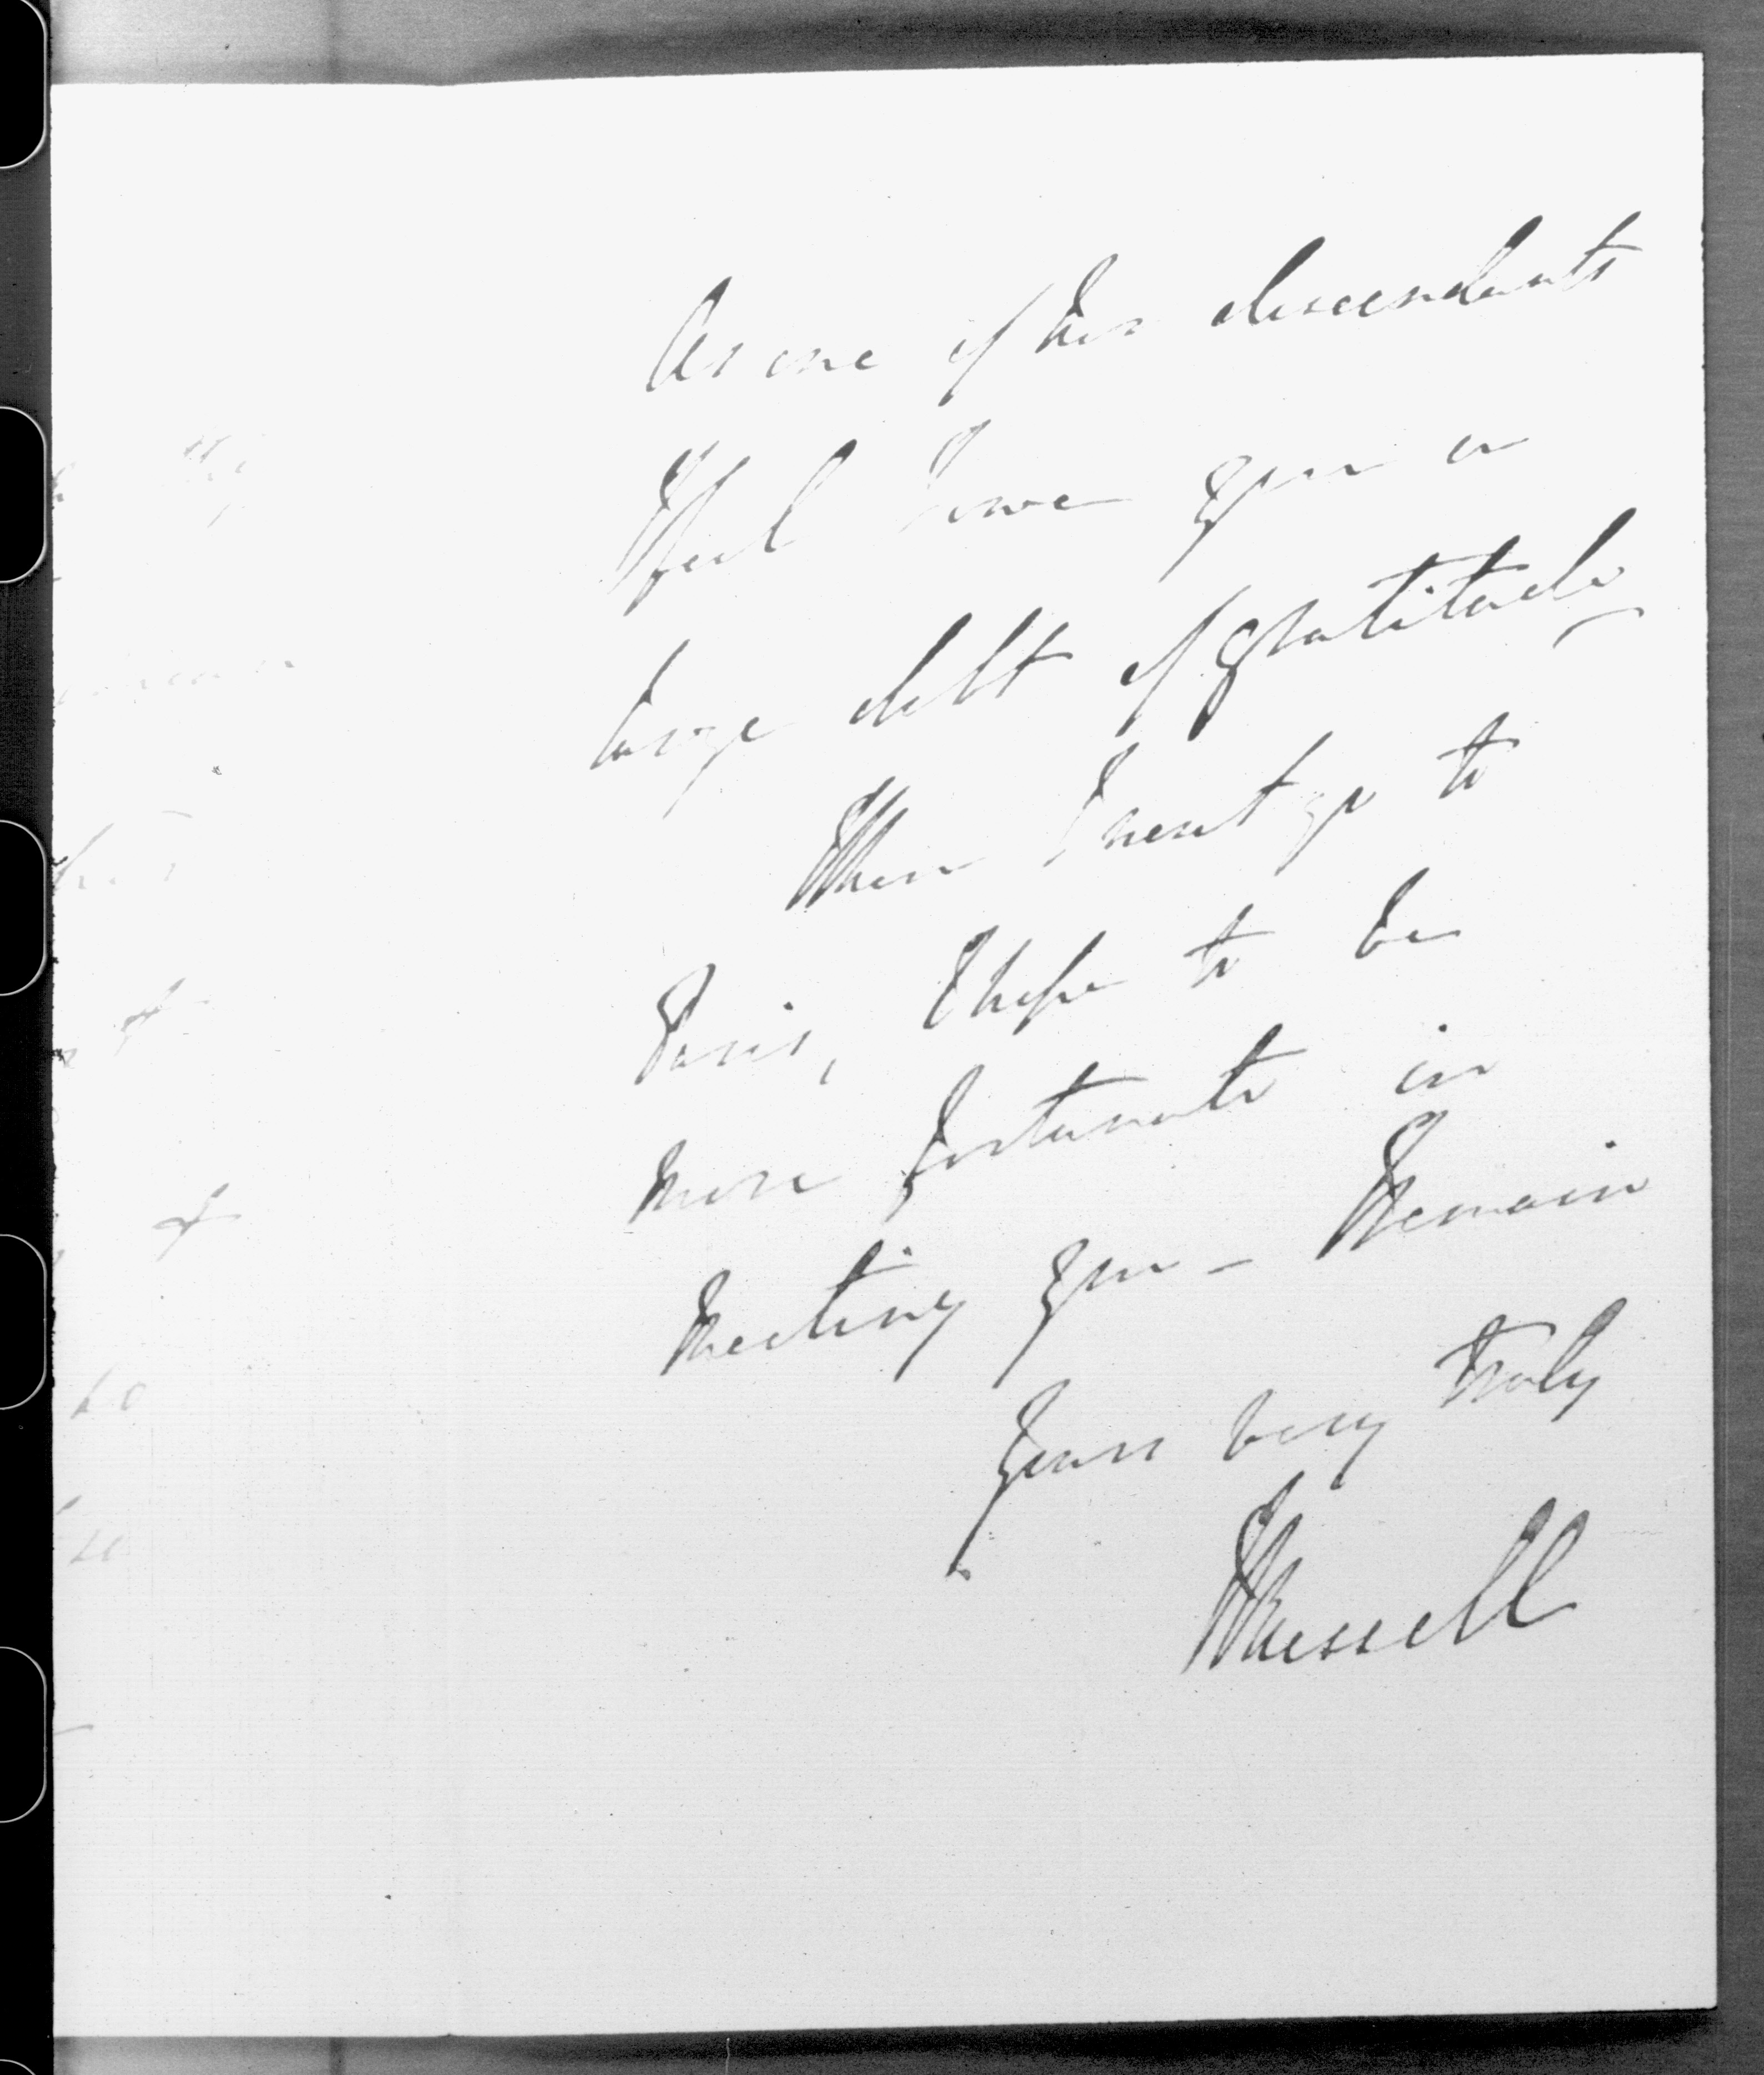 As one of his descendants
I feel I owe you a
large debt of gratitude
When I next go to
Paris, I hope to be
more fortunate in
meeting you – I remain
Yours very truly
Russell